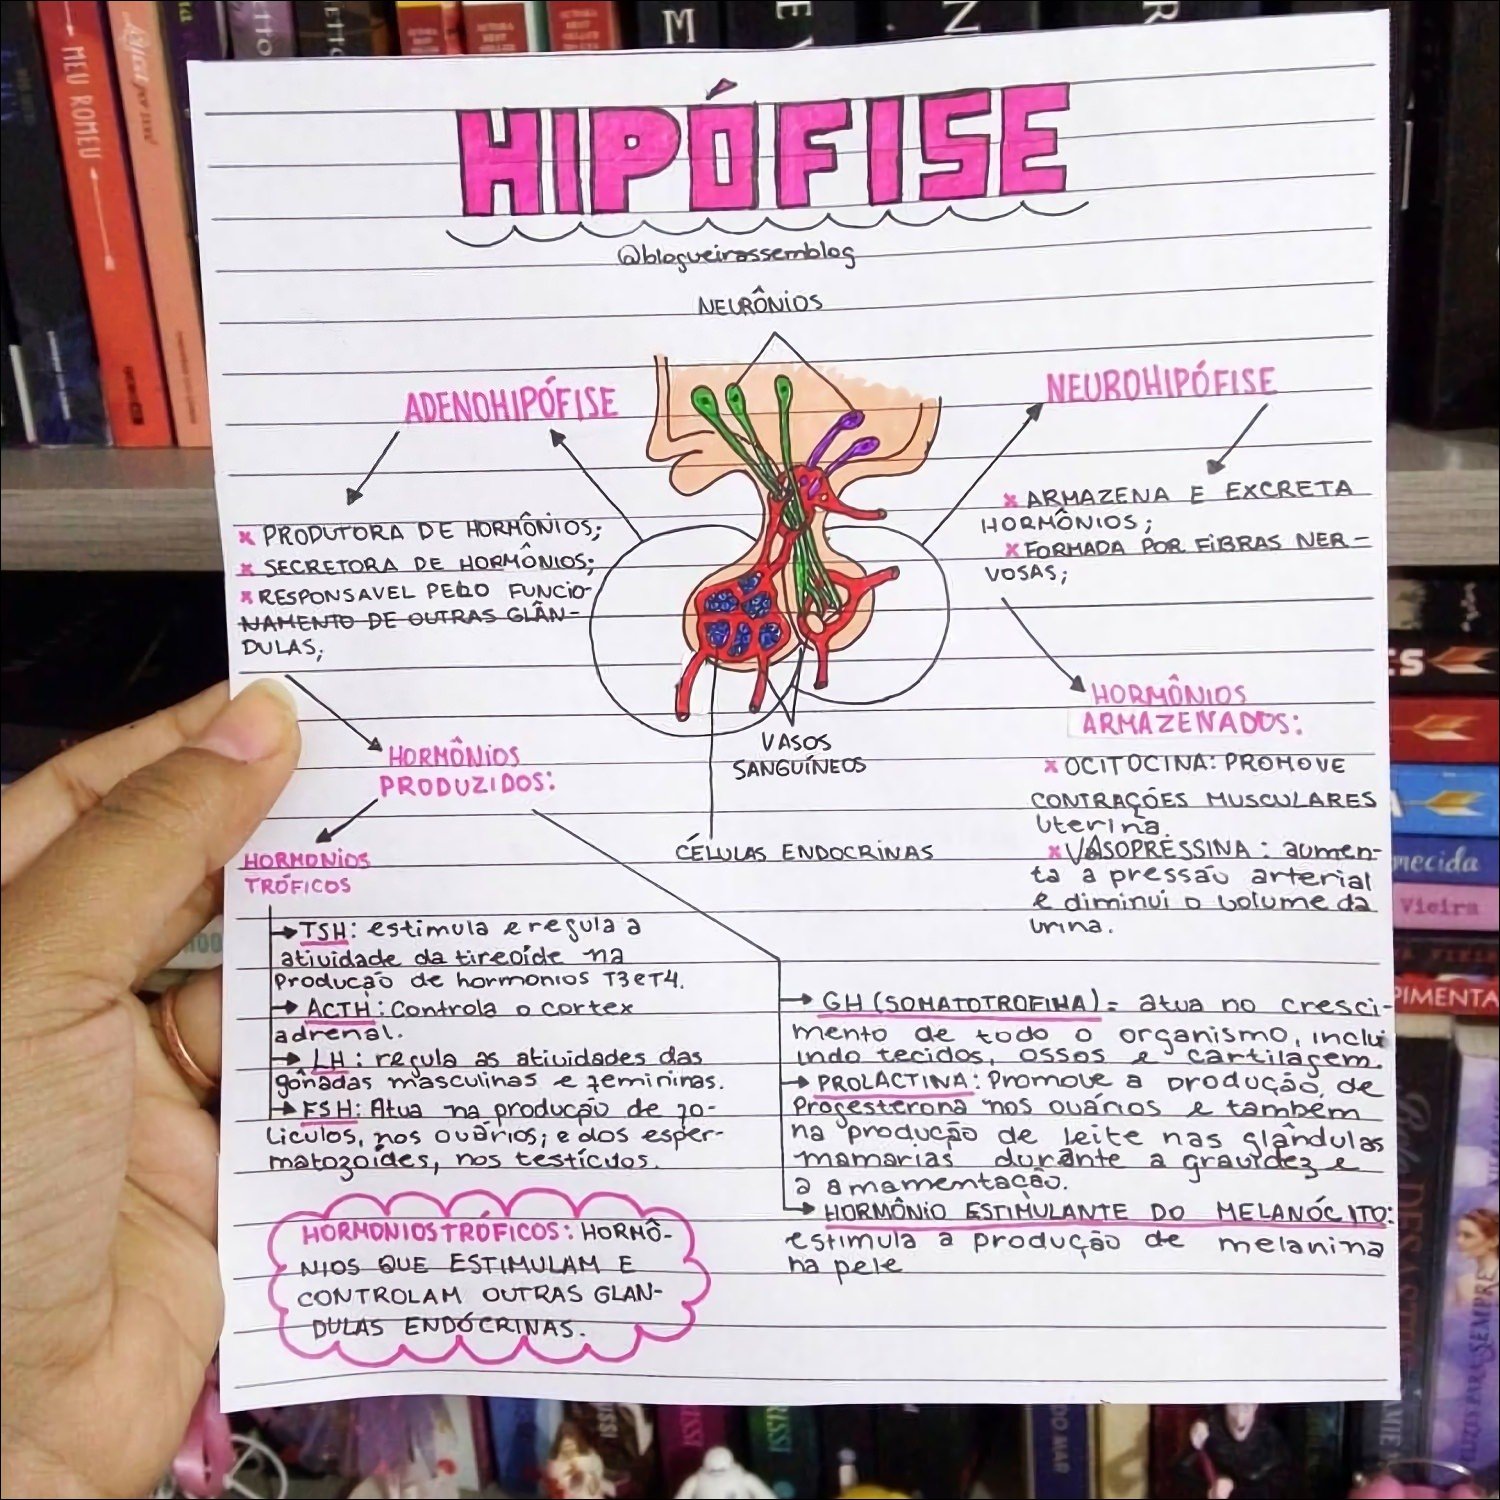 MEU ROMEU
M
HIPÓFISE
@blogueirassemblog
NEURÔNIOS
ADENOHIPÓFISE
× PRODUTORA DE HORMÔNIOS;
× SECRETORA DE HORMÔNIOS;
× RESPONSAVEL PELO FUNCIO-
NAMENTO DE OUTRAS GLÂN-
DULAS;
NEUROHIPÓFISE
× ARMAZENA E EXCRETA
HORMÔNIOS;
× FORMADA POR FIBRAS NER-
VOSAS;
VASOS
SANGUÍNEOS
CÉLULAS ENDOCRINAS
HORMÔNIOS
PRODUZIDOS:
HORMONIOS
TRÓFICOS
→ TSH: estimula e regula a
atividade da tireoide na
produção de hormonios T3 e T4.
→ ACTH: Controla o cortex
adrenal.
→ LH: regula as atividades das
gônadas masculinas e femininas.
→ FSH: Atua na produção de fo-
liculos, nos ovários; e dos esper-
matozoídes, nos testículos.
HORMONIOS TRÓFICOS: HORMÔ-
NIOS QUE ESTIMULAM E
CONTROLAM OUTRAS GLAN-
DULAS ENDÓCRINAS.
HORMÔNIOS
ARMAZENADOS:
× OCITOCINA: PROMOVE
CONTRAÇÕES MUSCULARES
Uterina.
× VASOPRESSINA: aumen-
ta a pressão arterial
e diminui o volume da
urina.
→ GH (SOMATOTROFINA) = atua no cresci-
mento de todo o organismo, inclu
indo tecidos, ossos e cartilagem.
→ PROLACTINA: Promove a produção, de
Progesterona nos ovários e também
na produção de leite nas glândulas
mamarias durante a gravidez e
a amamentação.
→ HORMÔNIO ESTIMULANTE DO MELANÓCITO:
estimula a produção de melanina
na pele
necida
Vieira
PIMENTA